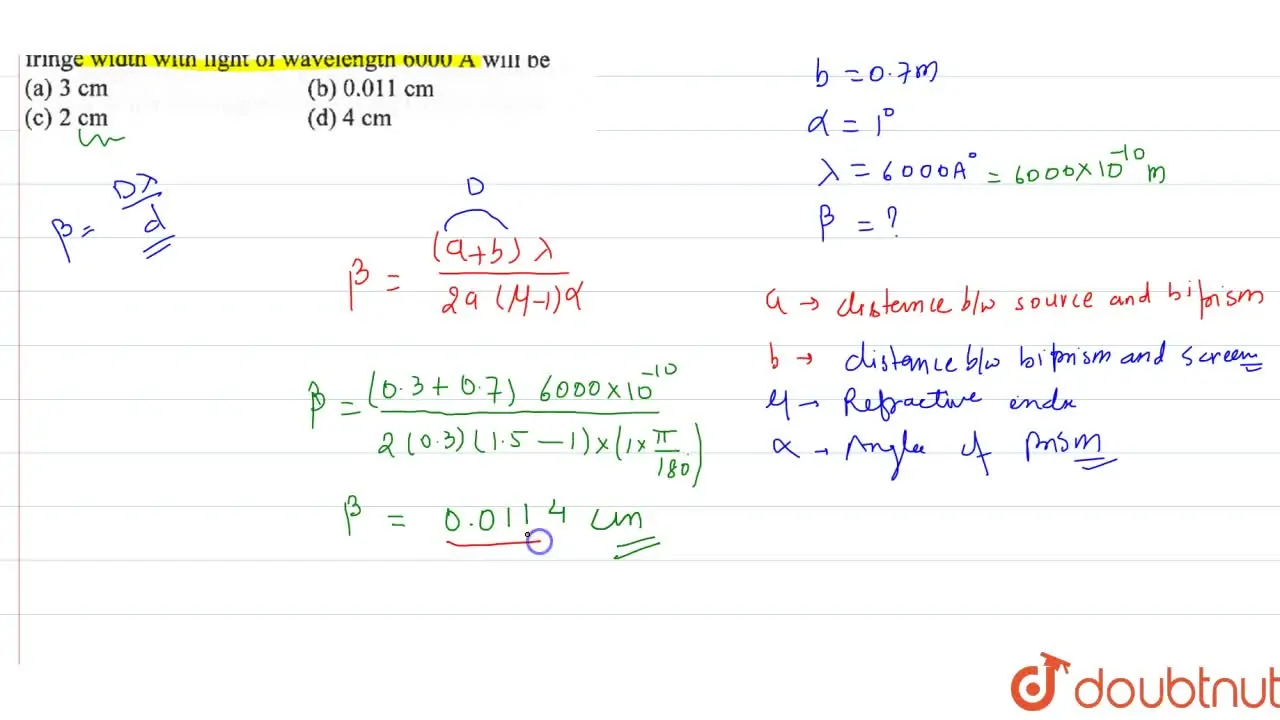 fringe width with light of wavelength 6000 A will be
(a) 3 cm (b) 0.011 cm
(c) 2 cm (d) 4 cm
cm
β = Dλ / d
D
β = (a+b) λ / 2a (μ-1)α
β = (0.3 + 0.7) 6000×10⁻¹⁰ / 2 (0.3) (1.5 - 1) × (1× π/180)
β = 0.0114 cm
b = 0.7m
α = 1°
λ = 6000A° = 6000×10⁻¹⁰ m
β = ?
a → distance b/w source and biprism
b → distance b/w biprism and screen
μ → Refractive index
α → Angle of prism
doubtnut